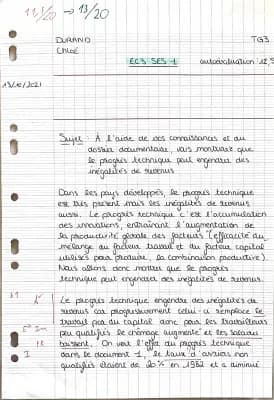 11,5/20 → 13/20
DURAND
Chloé
TG3
EC3 SES 1
autoévaluation : 12,5
13/10/2021
Sujet : À l'aide de vos connaissances et du
dossier documentaire, vous montrerez que
le progrès technique peut engendrer des
inégalités de revenus
Dans les pays développés, le progrès technique
est très présent mais les inégalités de revenus
aussi. Le progrès technique c'est l'accumulation
des innovations, entraînant l'augmentation de
la productivité globale des facteurs (l'efficacité du
mélange du facteur travail et du facteur capital
utilisés pour produire, la combinaison productive).
Nous allons donc montrer que le progrès
technique peut engendrer des inégalités de revenus.
Le progrès technique engendre des inégalités de
revenus car progressivement celui-ci remplace le
travail peu du capital donc pour les travailleurs
peu qualifiés le chômage augmente et les salaires
baissent. On voit l'effet du progrès technique
dans le document 1, le taux d'ouvriers non
qualifiés étaient de 20% en 1982 et a diminué